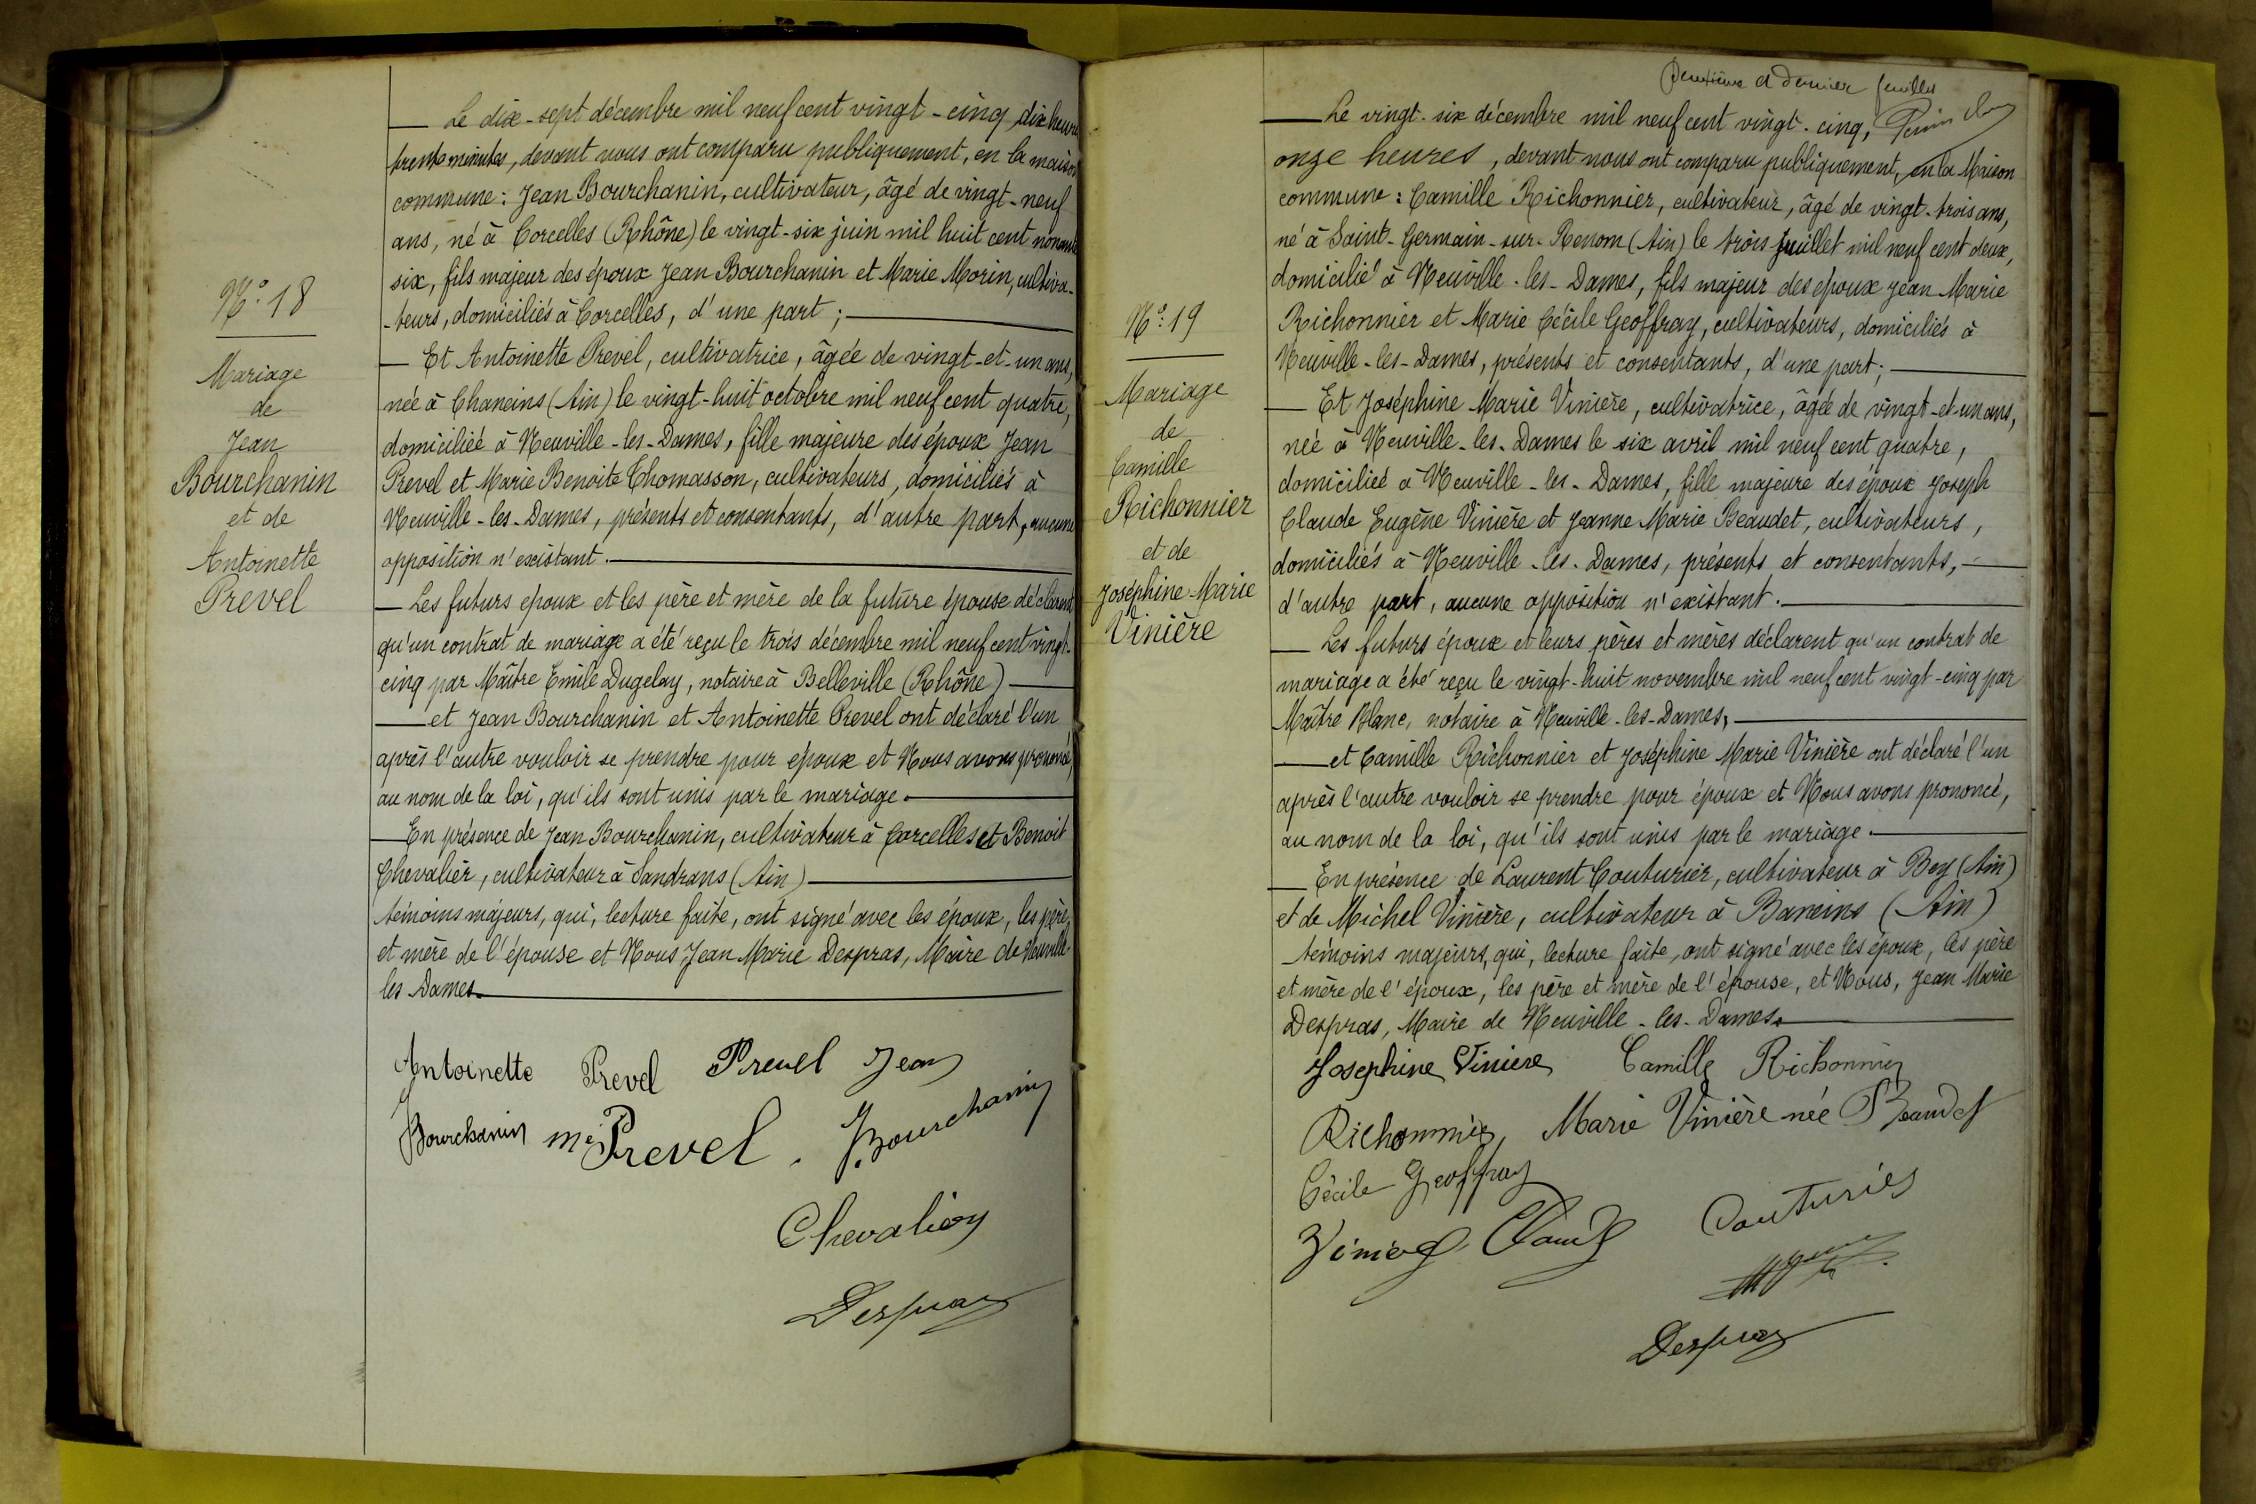 N° 18
Mariage
de
Jean
Bourchanin
et de
Antoinette
Prevel
Le dix-sept décembre mil neuf cent vingt-cinq dix heures
trente minutes, devant nous ont comparu publiquement, en la maison
commune : Jean Bourchanin, cultivateur, âgé de vingt-neuf
ans, né à Corcelles (Rhône) le vingt-six juin mil huit cent nonante
six, fils majeur des époux Jean Bourchanin et Marie Morin, cultiva-
-teurs, domiciliés à Corcelles, d'une part ;
Et Antoinette Prevel, cultivatrice, âgée de vingt-et-un ans,
née à Chaneins (Ain) le vingt-huit octobre mil neuf cent quatre,
domiciliée à Neuville-les-Dames, fille majeure des époux Jean
Prevel et Marie Benoite Thomasson, cultivateurs, domiciliés à
Neuville-les-Dames, présents et consentants, d'autre part, aucune
opposition n'existant.
Les futurs époux et les père et mère de la future épouse déclarent
qu'un contrat de mariage a été reçu le trois décembre mil neuf cent vingt-
cinq par Maître Emile Dugelay, notaire à Belleville (Rhône)
et Jean Bourchanin et Antoinette Prevel ont déclaré l'un
après l'autre vouloir se prendre pour époux et Nous avons prononcé,
au nom de la loi, qu'ils sont unis par le mariage.
En présence de Jean Bourchanin, cultivateur à Corcelles et Benoit
Chevalier, cultivateur à Sandrans (Ain)
témoins majeurs, qui, lecture faite, ont signé avec les époux, les père,
et mère de l'épouse et Nous, Jean Marie Despras, Maire de Neuville-
les Dames.
Antoinette Prevel Prevel Jean
J Bourchanin Me Prevel. J. Bourchanin
Chevalier
Despras
Deuxième et dernier feuillet
N° 19
Mariage
de
Camille
Richonnier
et de
Joséphine Marie
Vinière
Le vingt-six décembre mil neuf cent vingt-cinq,
onze heures, devant nous ont comparu publiquement, en la Maison
commune : Camille Richonnier, cultivateur, âgé de vingt-trois ans,
né à Saint-Germain-sur-Renom (Ain) le trois juillet mil neuf cent deux,
domicilié à Neuville-les-Dames, fils majeur des époux Jean Marie
Richonnier et Marie Cécile Geoffray, cultivateurs, domiciliés à
Neuville-les-Dames, présents et consentants, d'une part ;
Et Joséphine Marie Vinière, cultivatrice, âgée de vingt-et-un ans,
née à Neuville-les-Dames le six avril mil neuf cent quatre,
domiciliée à Neuville-les-Dames, fille majeure des époux Joseph
Claude Eugène Vinière et Jeanne Marie Beaudet, cultivateurs,
domiciliés à Neuville-les-Dames, présents et consentants,
d'autre part, aucune opposition n'existant.
Les futurs époux et leurs pères et mères déclarent qu'un contrat de
mariage a été reçu le vingt-huit novembre mil neuf cent vingt-cinq par
Maître Blanc, notaire à Neuville-les-Dames,
et Camille Richonnier et Joséphine Marie Vinière ont déclaré l'un
après l'autre vouloir se prendre pour époux et Nous avons prononcé,
au nom de la loi, qu'ils sont unis par le mariage.
En présence de Laurent Couturier, cultivateur à Bey (Ain)
et de Michel Vinière, cultivateur à Baneins (Ain)
témoins majeurs, qui, lecture faite, ont signé avec les époux, les père
et mère de l'époux, les père et mère de l'épouse, et Nous, Jean Marie
Despras, Maire de Neuville-les-Dames.
Josephine Viniere Camille Richonnier
Richonnier Marie Vinière née Beaudet
Cécile Geoffray
Vinière Claude Couturier
Despras